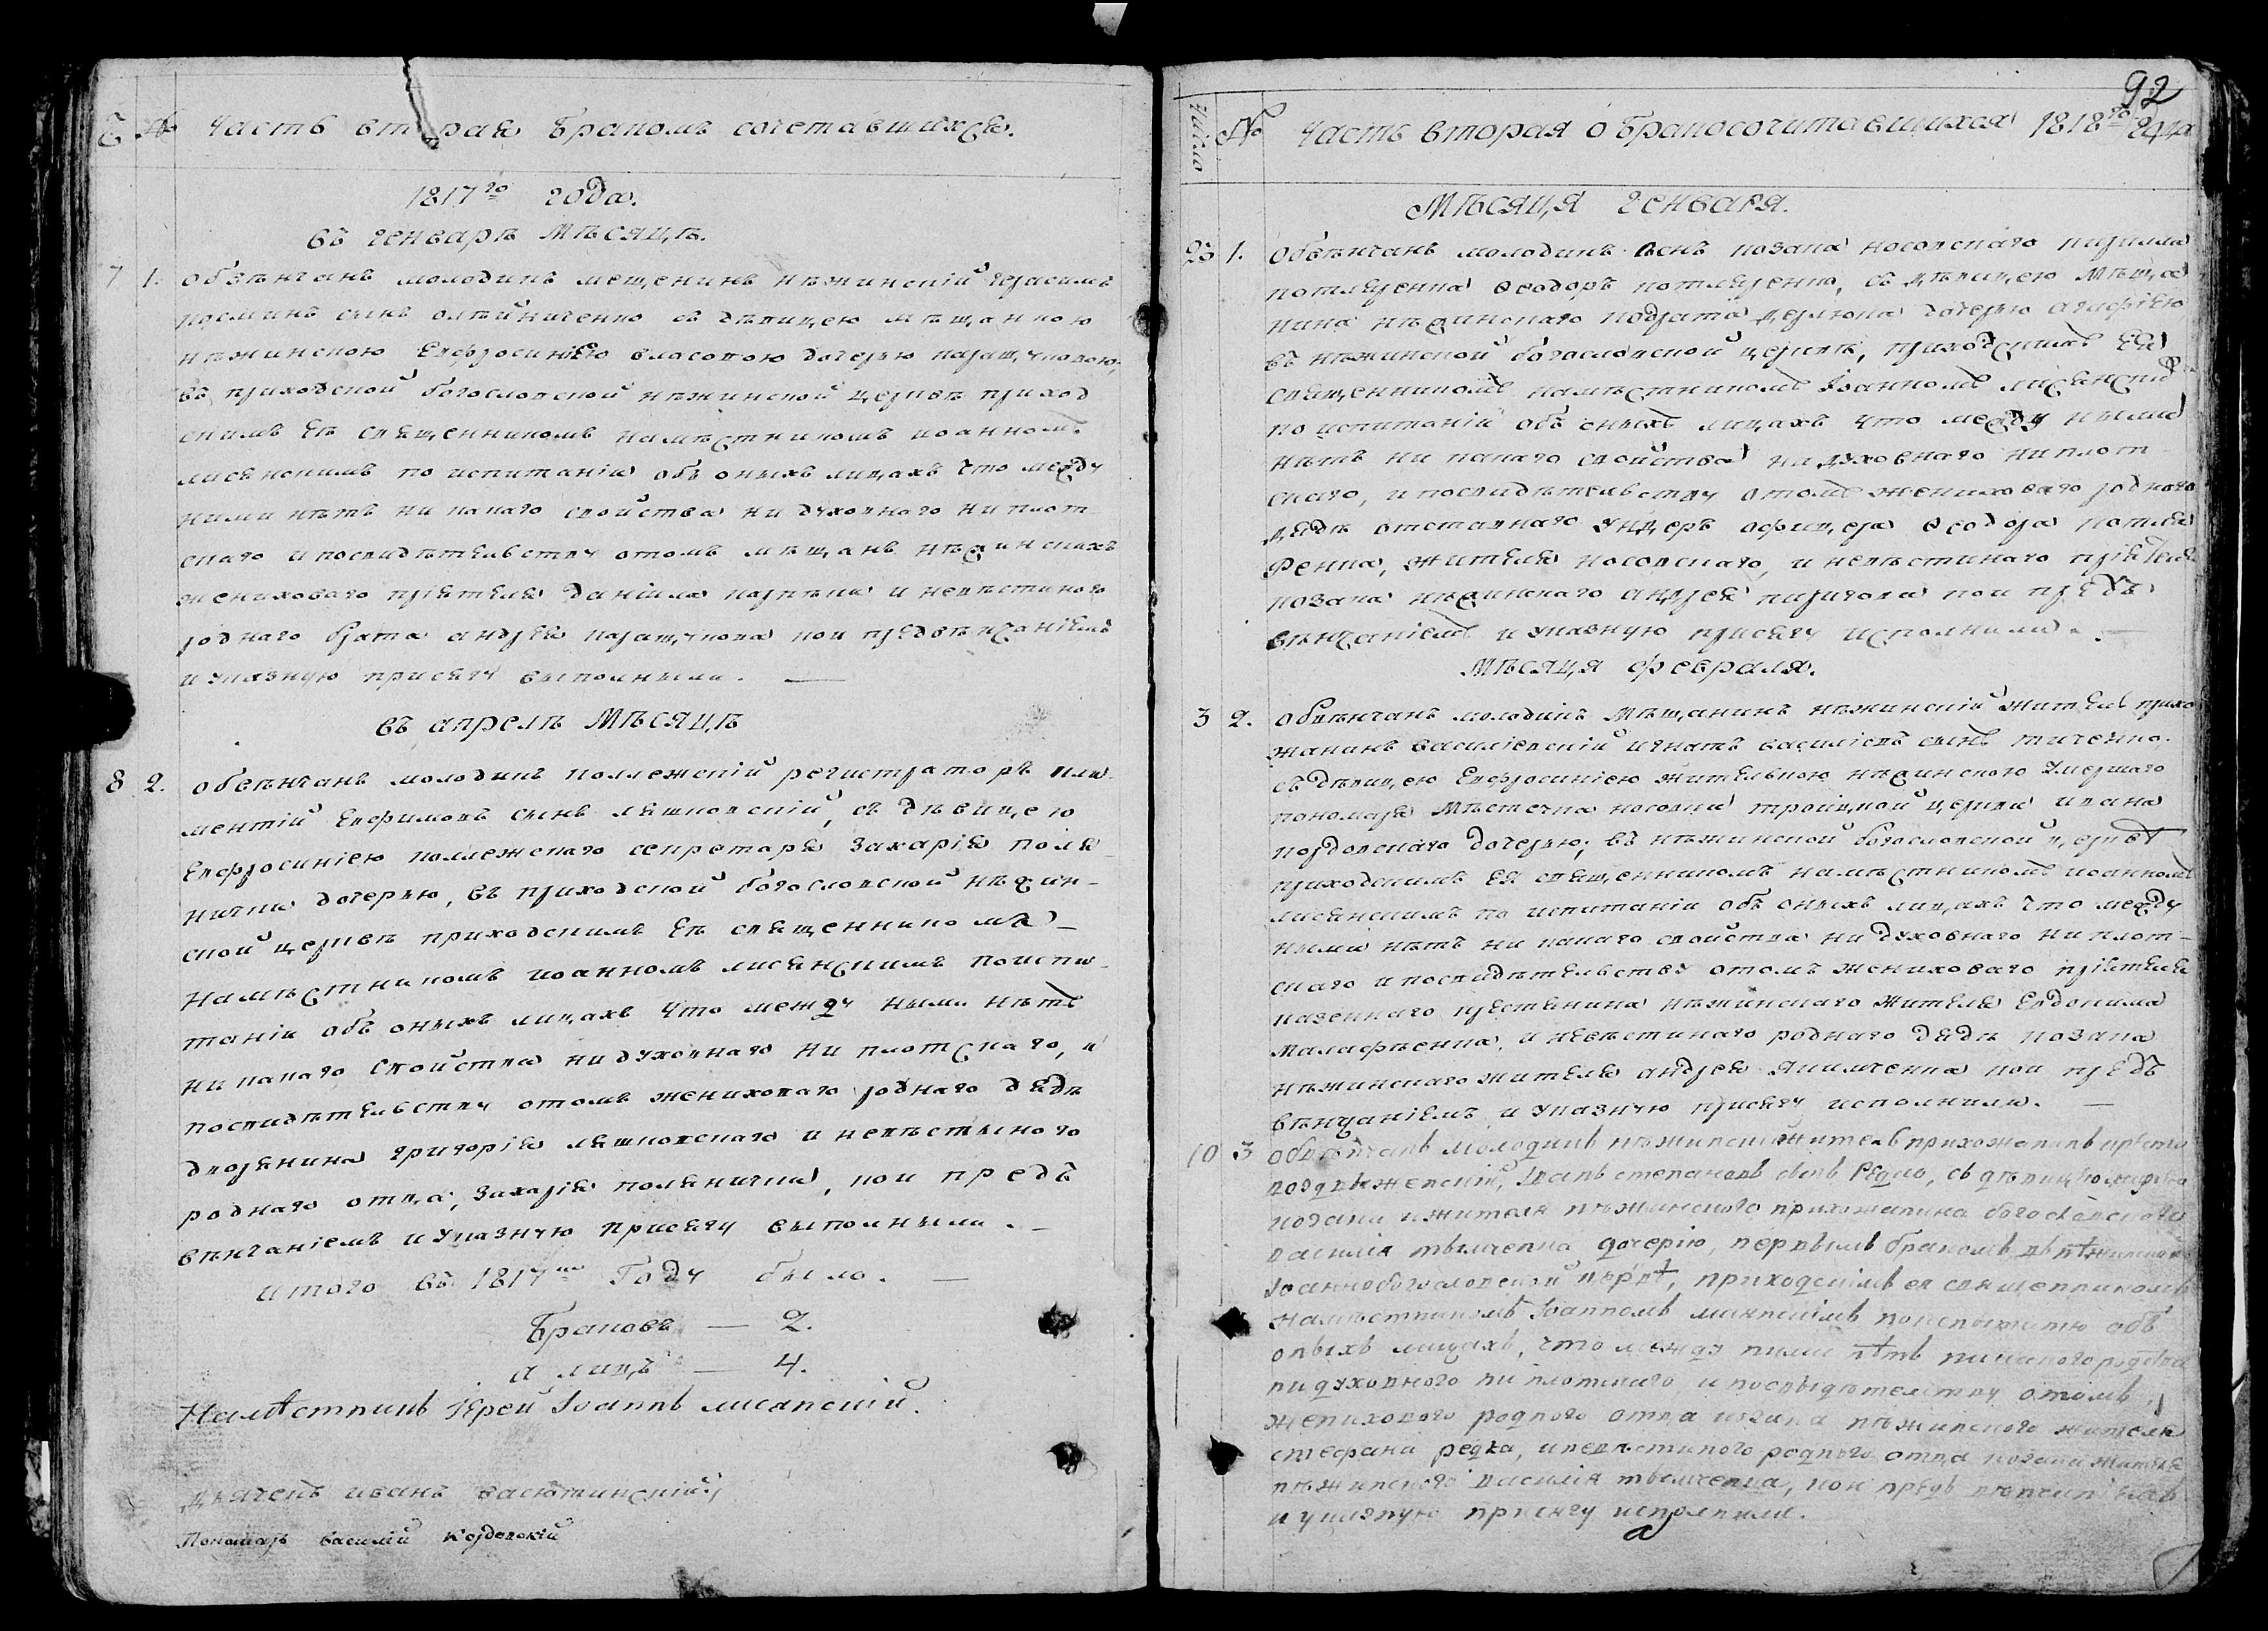 Часть вторая бракомъ сочетавшихся.
1817го года.
въ генварѣ мѣсяцѣ.
7 1. Обвѣнчанъ молодикъ мещенинъ нѣжинскій Герасимъ
сынъ олѣйниченко съ дѣвицею мѣщанкою
нѣжинскою Евфросиніею власовою дочерью
въ приходской богословской нѣжинской церквѣ приход
скимъ еѣ священникомъ намѣстникомъ иоанномъ
лисянскимъ по испитаніи объ оныхъ лицахъ что между
ними нѣтъ ни какаго свойства ни духовнаго ни плот
скаго и по свидѣтельству отомъ мѣщанъ нѣжинскихъ
жениховаго пріятеля Даніила и невѣстиного
родного брата андрея кои предвѣнчаніемъ
и указную присягу выполныли.
въ апрелѣ мѣсяцѣ
8 2. Обвѣнчанъ молодикъ коллежскій регистраторъ кли
ментій Евфимовъ сынъ ляшковскій, съ дѣвицею
Евфросиніею коллежскаго секретаря Захарія поля
нички дочерью, въ приходской богословской нѣжин-
ской церквѣ приходскимъ еѣ священникомъ
намѣстникомъ иоанномъ лисянскимъ по испи
таніи объ оныхъ лицахъ что между ными нѣтъ
ни какаго свойства ни духовнаго ни плотскаго, и
по свидѣтельству отомъ жениховаго родного дядѣ
дворянина григорія ляшковскаго и невѣстыного
родного отца, захарія полянички, кои предъ
вѣнчаніемъ и указную присягу выполныли.
итого въ 1817м Году было.
Браковъ — 2.
а лицъ — 4.
Намѣстникъ Іерей Іоаннъ лисянскій.
Дьячекъ иванъ
Пономарь василій Кордовскій
92
Число № Часть вторая о бракосочитавшихся 1818го года
Мѣсяця генваря.
23 1. Обвѣнчанъ молодикъ сынъ козака носовскаго кирилла
Ѳеодоръ съ дѣвицею мѣща
нина нѣжинскаго дочерью агафіею
въ нѣжинской богословской церквѣ, приходскимъ ея
священникомъ намѣстникомъ Іоанномъ лисянскимъ
по испитаніи объ оныхъ лицахъ что между ными
нѣтъ ни какаго свойства ни духовнаго ни плот
скаго, и по свидѣтельству отомъ жениховаго родного
дядѣ отставнаго ундеръ офицера Ѳеодора
жителя носовскаго, и невѣстинаго пріятеля
козака нѣжинскаго андрея кои предъ
вѣнчаніемъ и указную присягу исполнили.
Мѣсяця февраля.
3 2. Обвѣнчанъ молодикъ мѣщанинъ нѣжинскій житель прихо
жанинъ василіевскій игнатъ василіевъ сынъ
съ дѣвицею Евфросиніею жителькою нѣжинскою умершаго
пономаря мѣстечка носовки троицкой церкви ивана
кордовскаго дочерью; въ нѣжинской богословской церквѣ
приходскимъ ея священникомъ намѣстникомъ иоанномъ
лисянскимъ по испитаніи объ оныхъ лицахъ что между
ными нѣтъ ни какаго свойства ни духовнаго ни плот-
скаго и по свидѣтельству отомъ жениховаго пріятеля
казеннаго крестянина нѣжинскаго жителя Евдокима
малафѣенка, и невѣстинаго роднаго дядѣ козака
нѣжинскаго жителя андрея якименка кои предъ
вѣнчаніемъ и указную присягу исполнили.
10 3 Обвѣнчанъ молодикъ нѣжинскій житель прихожанинъ кресто
воздвиженскій, Іванъ степановъ сынъ Редко, съ дѣвицею
козака и жителя нѣжинскаго прихожанина богословского
василія дочерію, первымъ бракомъ, въ нѣжинской
Іоаннобогословской церквѣ, приходскимъ ея священникомъ
намѣстникомъ Іоанномъ лисянскимъ по испытанію объ
оныхъ лицахъ, что между ними нѣтъ никакого родства
ни духовного ни плотского и по свыдѣтелству отомъ
женихового родного отца козака нѣжинского жителя
стефана редка, и невѣстиного родного отца козака жителя
нѣжинского василія кои предъ вѣнчаніемъ
и указную присягу исполнили.